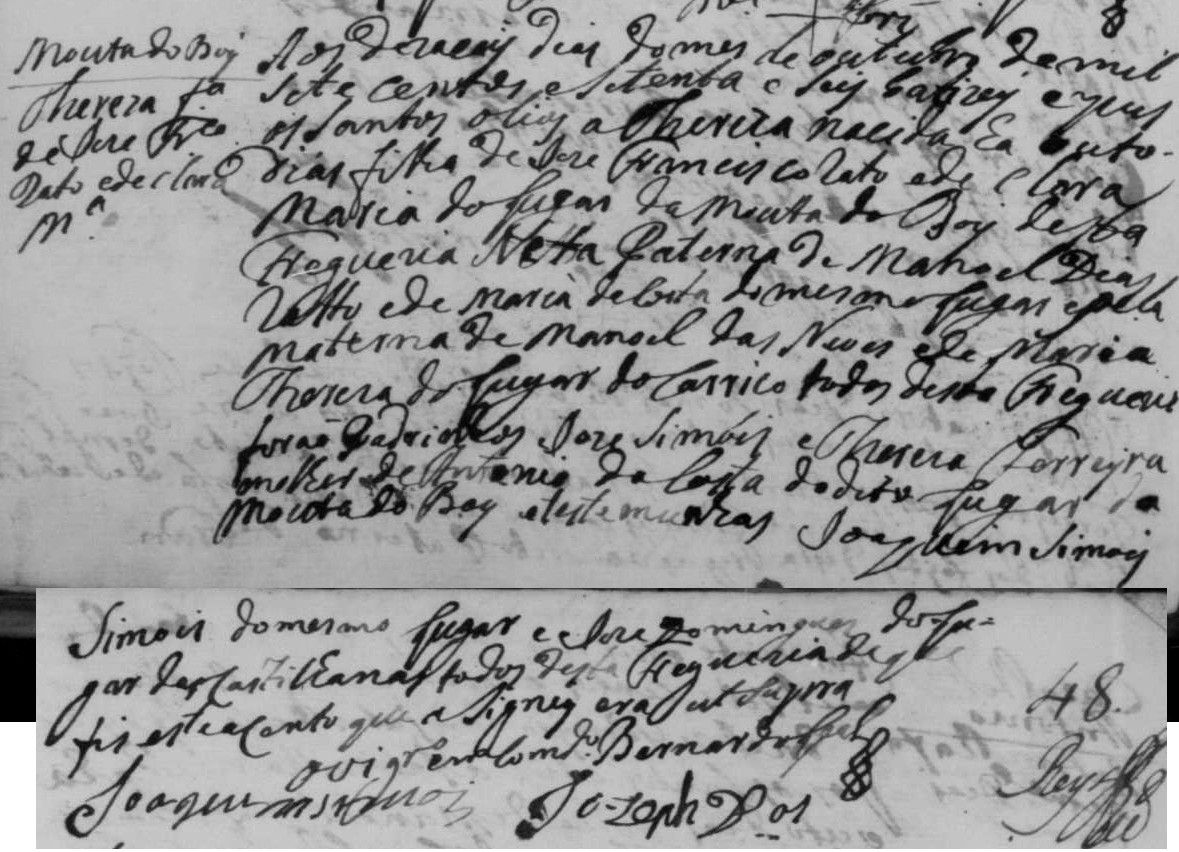 Mouta do Boy
Thereza fa
de Joze Frco
Rato e de Clara
Ma
Aos dezaceis dias do mes de outubro de mil
sete centos e setenta e seis baptizey e pus
os santos olios a Thereza nacida ha outo-
dias filha de Joze Francisco Rato e de Clara
Maria do lugar da Mouta do Boy desta
Fregueria Netta Paterna de Manoel Dias
Ratto e de Maria de Costa do mesmo lugar e pella
materna de Manoel das Neves e de Maria
Thereza do lugar do Carrico todos desta Fregueria
foraõ Padrinhos Joze Simóis e Thereza Ferreyra
molher de Antonio da Costa do dito lugar da
Mouta do Boy e testemunhas Joaquim Simois
Simois do mesmo lugar e Joze Domingues do lu=
gar das Castilhanas todos desta Fregueria de que
fis este acento que asigney era ut supra
o vigro encomdo Bernardo
Joaquim simois Jozeph Dos
48.